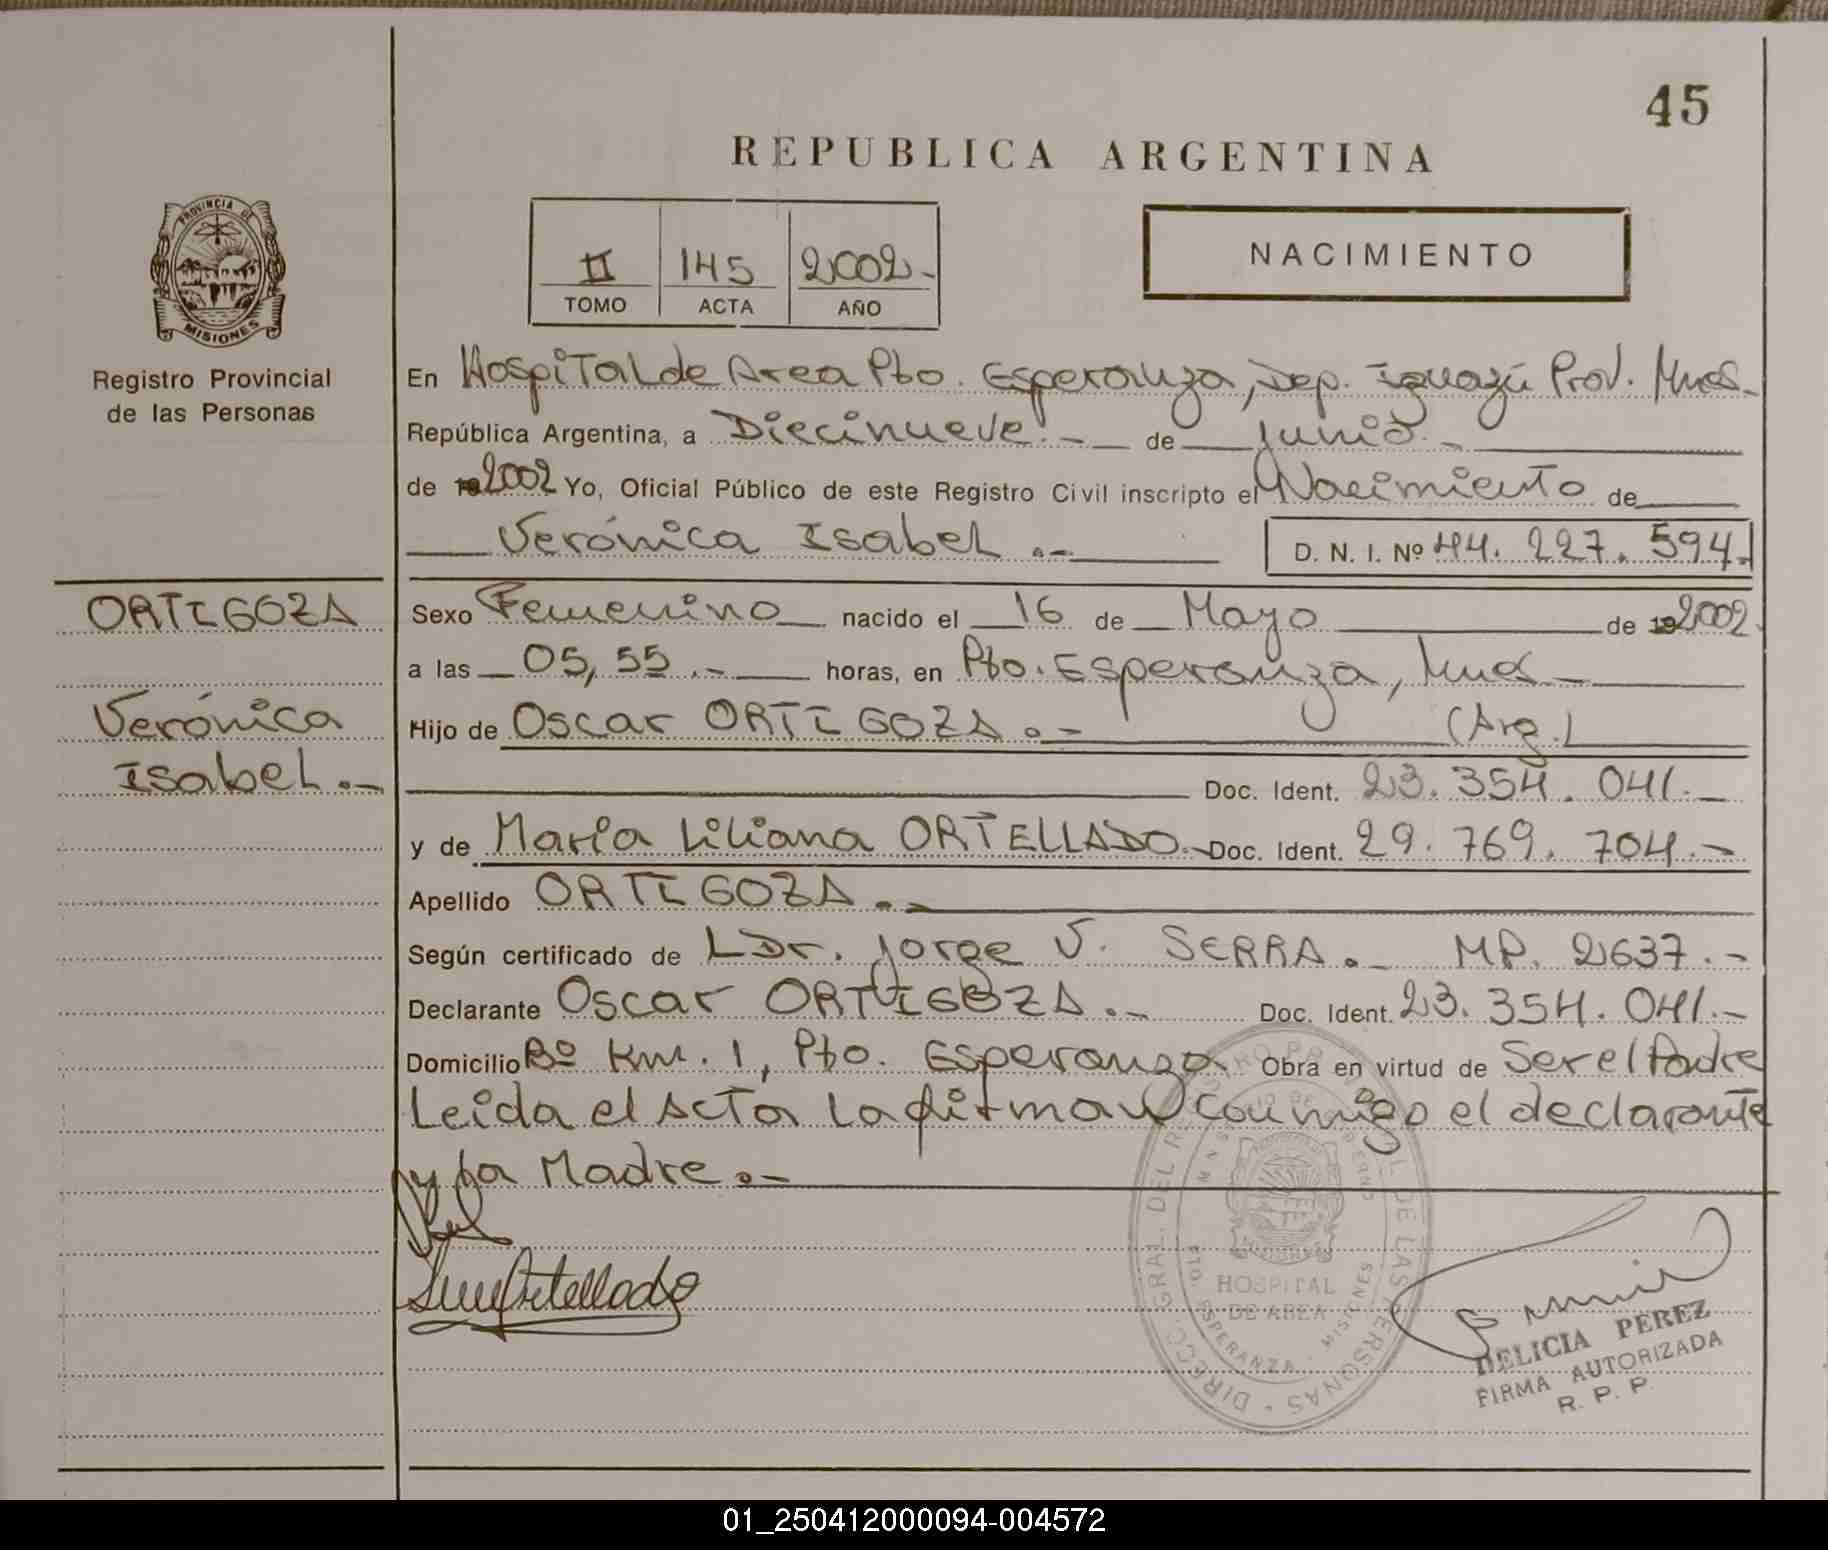 45
REPUBLICA ARGENTINA
PROVINCIA DE
MISIONES
Registro Provincial
de las Personas
II 145 2002.-
TOMO ACTA AÑO
NACIMIENTO
En Hospital de Area Pto. Esperanza, Dep. Iguazú Prov. Mnes.-
República Argentina, a Diecinueve.- de junio.-
de 19 2002 Yo, Oficial Público de este Registro Civil inscripto el Nacimiento de
Verónica Isabel.- D. N. I. Nº 44. 227. 594.
ORTIGOZA
Verónica
Isabel.-
Sexo Femenino nacido el 16 de Mayo de 19 2002.
a las 05,55.- horas, en Pto. Esperanza, Mnes-
Hijo de Oscar ORTIGOZA.- (Arg.)
Doc. Ident. 23. 354. 041.-
y de María Liliana ORTELLADO.- Doc. Ident. 29. 769. 704.-
Apellido ORTIGOZA.-
Según certificado de LDr. Jorge V. SERRA.- MP. 2637.-
Declarante Oscar ORTIGOZA.- Doc. Ident. 23. 354. 041.-
Domicilio Bº Km. 1, Pto. Esperanza Obra en virtud de Ser el Padre
Leida el Acta la firman conmigo el declarante
y la Madre.-
Ortellado
DIRECC. GRAL. DEL REGISTRO PROVINCIAL DE LAS PERSONAS
HOSPITAL
DE AREA
PTO. ESPERANZA - MISIONES
DELICIA PEREZ
FIRMA AUTORIZADA
R. P. P.
01_250412000094-004572